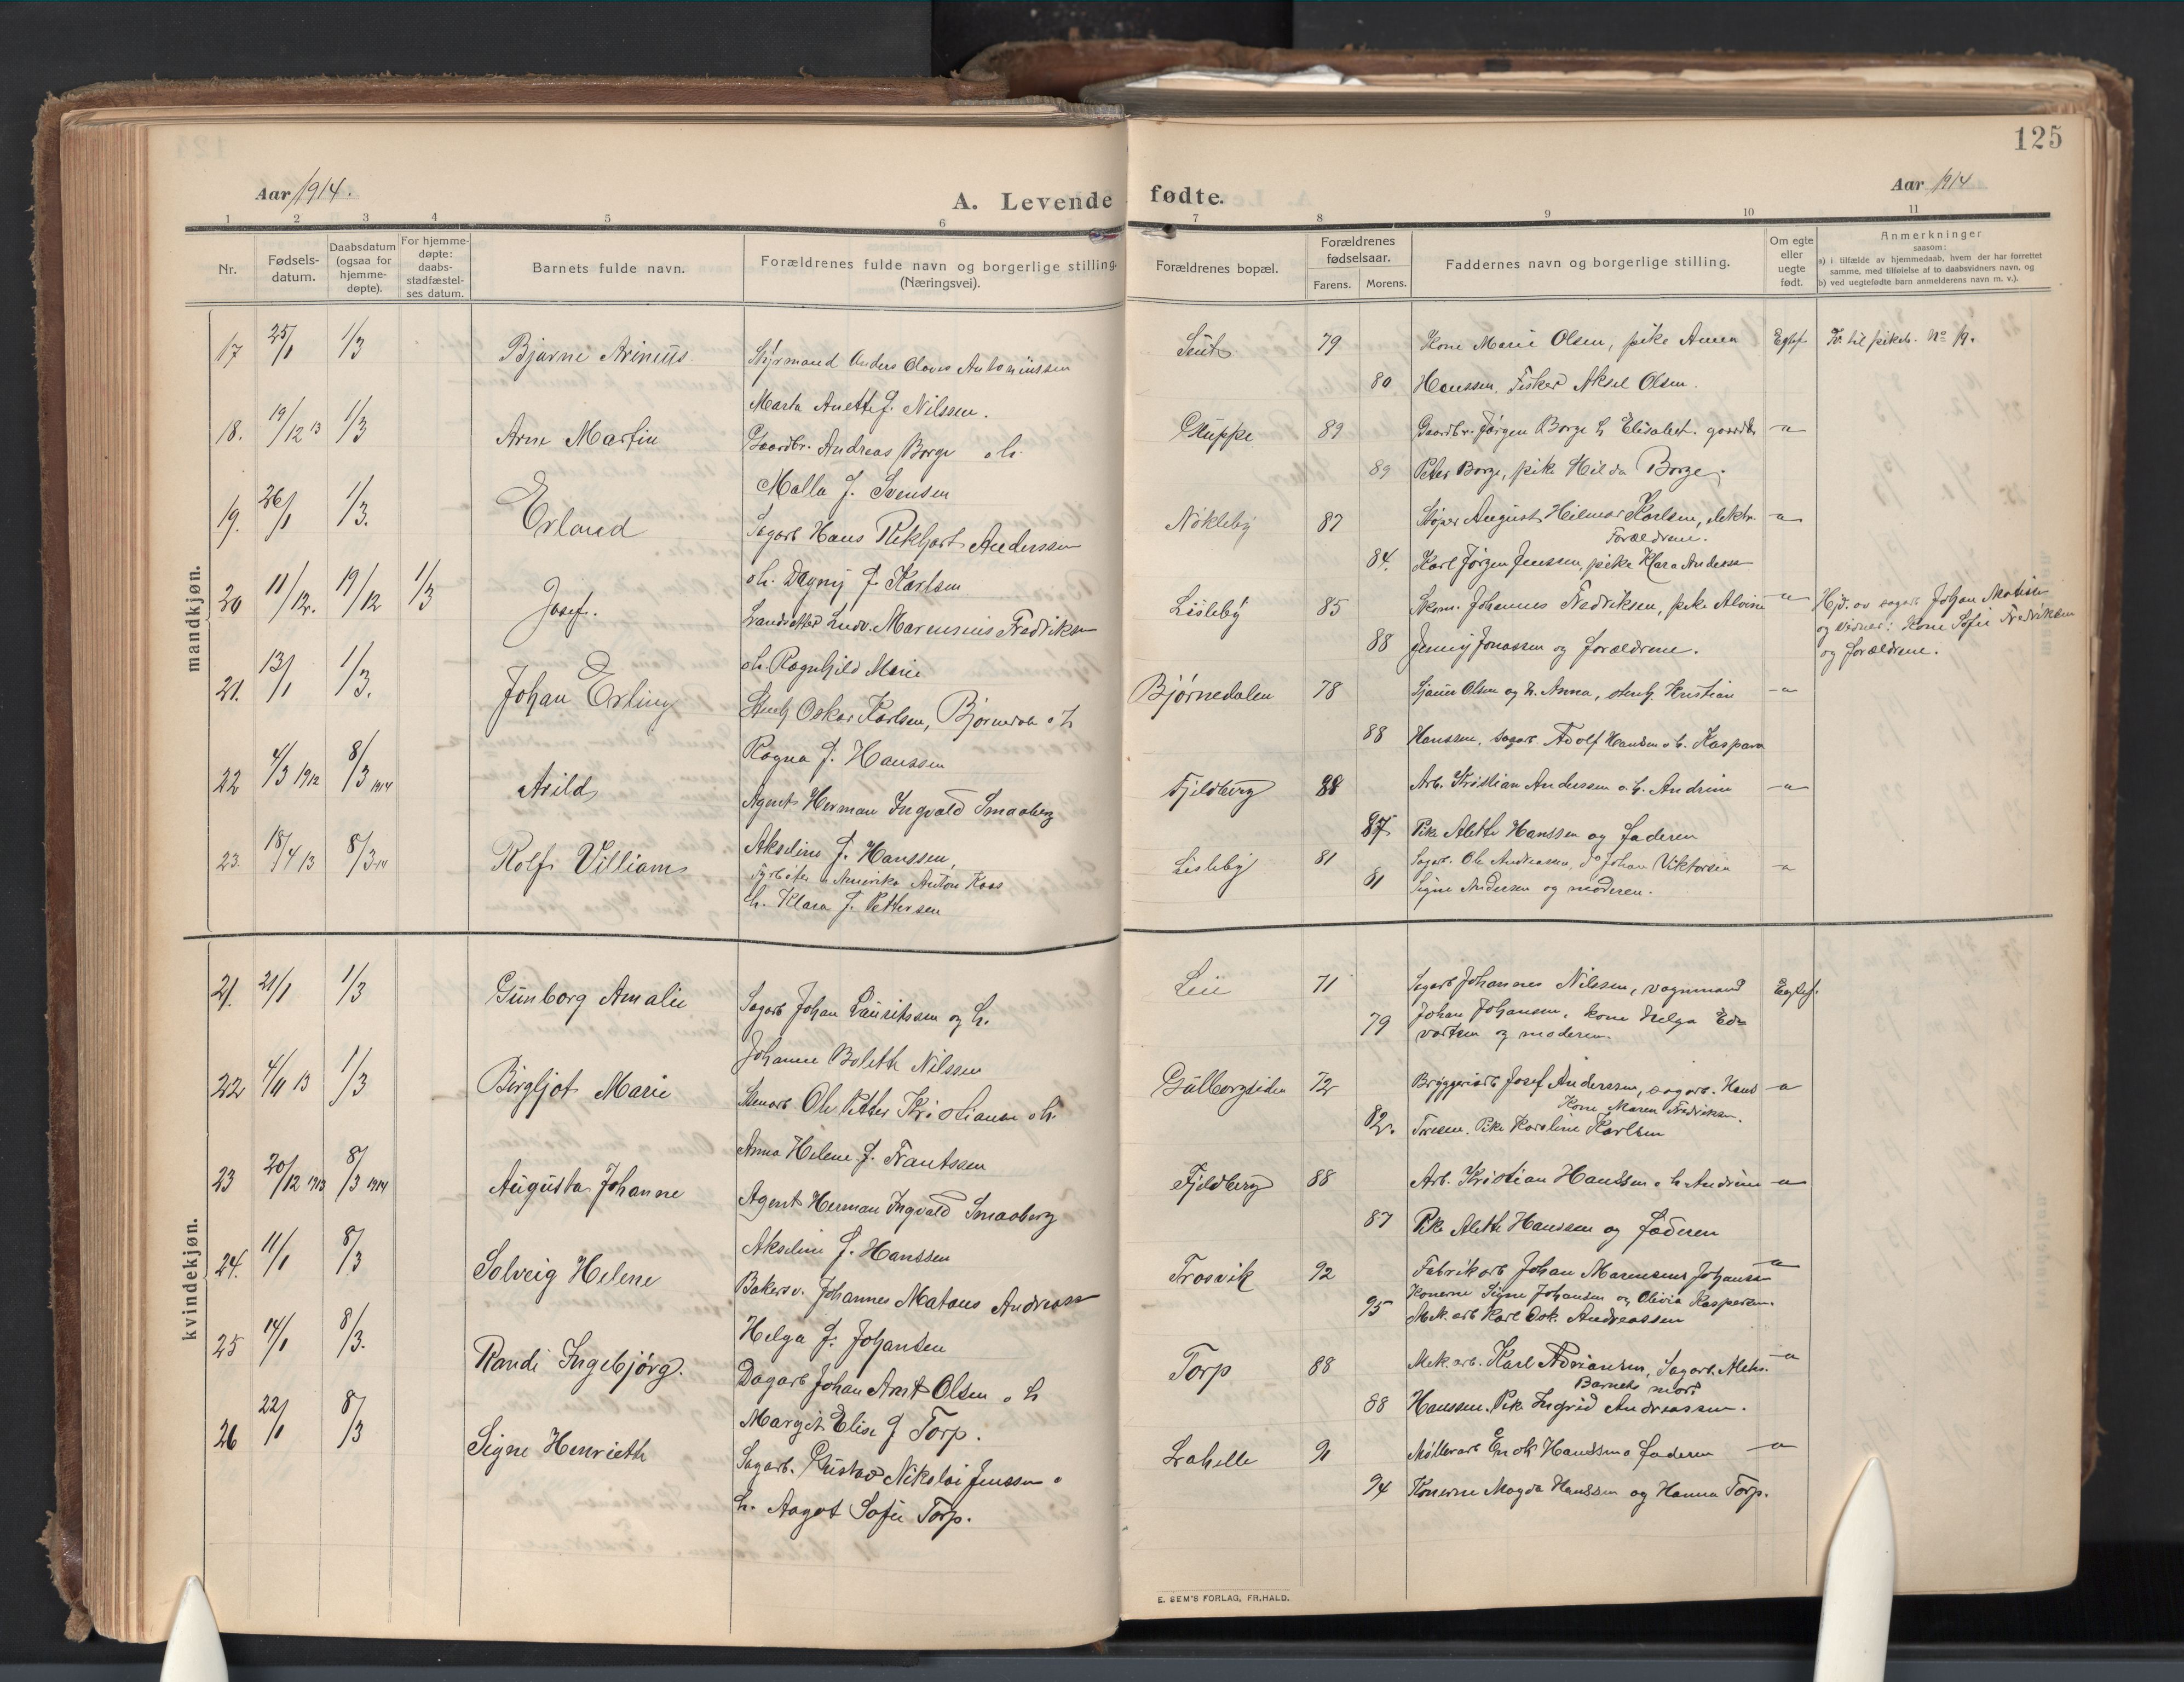 125
Aar 1914.
A. Levende fødte.
Aar 1914
1 2 3 4 5 6 7 8 9 10 11
Nr.
Fødsels-
datum.
Daabsdatum
(ogsaa for
hjemme-
døpte).
For hjemme-
døpte:
daabs-
stadfæstel-
ses datum.
Barnets fulde navn.
Forældrenes fulde navn og borgerlige stilling.
(Næringsvei).
Forældrenes bopæl.
Forældrenes
fødselsaar.
Farens. Morens.
Faddernes navn og borgerlige stilling.
Om egte
eller
uegte
født.
Anmerkninger
saasom:
a) i tilfælde av hjemmedaab, hvem der har forrettet
samme, med tilføielse af to daabsvidners navn, og
b) ved uegtefødte barn anmelderens navn m. v.).
mandkjøn.
17 25/1 1/3 Bjarne Arinius. Styrmand Anders Olavus Antoniussen
Marta Anette f. Nilssen.
79 Kone Marie Olsen, pike Anna Egtef.
80 Hanssen. Fisker Aksel Olsen.
18. 19/12 13 1/3 Arne Martin Gaardbr. Andreas Borge o h.
Malla f. Svensen
Gluppe 89 Gaardbr. Jørgen Borge o h Elisabet. gaardbr. -"-
89 Peter Borge, pike Hilda Borge.
19. 26/1 1/3. Erland Sagarb Hans Rikhart Anderssen
o h. Dagny f. Karlsen
Nøkleby 87 Støper August Hilmar Karlsen, elektr. -"-
Forældrene.
84. Karl Jørgen Jenssen, pike Klara Anderse
20 11/12. 19/12 1/3 Josef. Ludv. Marensius Fredriksen
o h. Ragnhild Marie
Lisleby 85 Johannes Fredriksen, pike Alvine -"-
88 Jenny Jonassen og forældrene.
Hjd. av sagarb Johan Matisen
og vidner: Kone Sofie Fredriksen
og forældrene.
21. 13/1 1/3. Johan Erling Stenh Oskar Karlsen, Bjørnedalen o h
Ragna f. Hanssen
Bjørnedalen 78 Sjauer Olsen og h. Anna, stenh. Kristian -"-
88 Hanssen, sagarb. Adolf Hansen o h. Kaspara
22 4/3 1912 8/3 1914 Arild Agent Herman Ingvald Smaaberg
Akseline f. Hanssen,
Fjeldberg 88 Arb. Kristian Anderssen o. h. Andrine -"-
87 Pike Alette Hanssen og faderen
23. 18/4 13 8/3 14 Rolf Villiam Fyrbøter i Amerika Anton Roos
h. Klara f. Pettersen
Lisleby 81 Sagarb. Ole Andreassen, do Johan Viktorsen -"-
81 Signe Andersen og moderen.
kvindekjøn.
21. 21/1 1/3 Gunborg Amalie Sagarb Johan Lauritssen og h.
Johanne Bolette Nilssen
Leie 71 Sagarb Johannes Nilssen, vognmand Egtef.
79 Johan Johansen, kone Helga Ed-
vartsen og moderen.
22 4/11 13 1/3 Birgljot Marie Stenarb Ole Petter Kristiansen o h.
Anna Helene f. Frantssen
Gulbergsiden 72 Bryggeriarb Josef Anderssen, sagarb. Hans -"-
Kone Maren Fredriksen.
82. Pike Karoline Karlsen
23 20/12 1913 8/3 1914 Augusta Johanne Agent Herman Ingvald Smaaberg
Akseline f. Hanssen
Fjeldberg 88 Arb. Kristian Hanssen o h Andrine -"-
87 Pike Alette Hanssen og faderen
24. 11/1 8/3 Solveig Helene Bakersv. Johannes Mataus Andreassen
Helga f. Johansen
Trosvik 92 Fabrikarb Johan Marensius Johansen -"-
Konerne Signe Johansen og Olivia Kaspersen.
95 Mek. arb Karl Osk. Andreassen
25 14/1 8/3. Randi Ingebjørg. Dagarb Johan Arnt Olsen o h
Margit Elise f Torp.
Torp 88 Mek. arb. Karl Adriansen, Sagarb. Aleks. -"-
Barnets mor
88 Hanssen. Pike Ingrid Andreassen.
26 22/1 8/3 Signe Henriette Sagarb. Gustav Nikolai Jenssen o
h. Aagot Sofie Torp.
Lahelle 91 Møllerarb Enok Hanssen o faderen -"-
94 Konerne Magda Hanssen og Hanna Torp.
E. SEM'S FORLAG, FR.HALD.